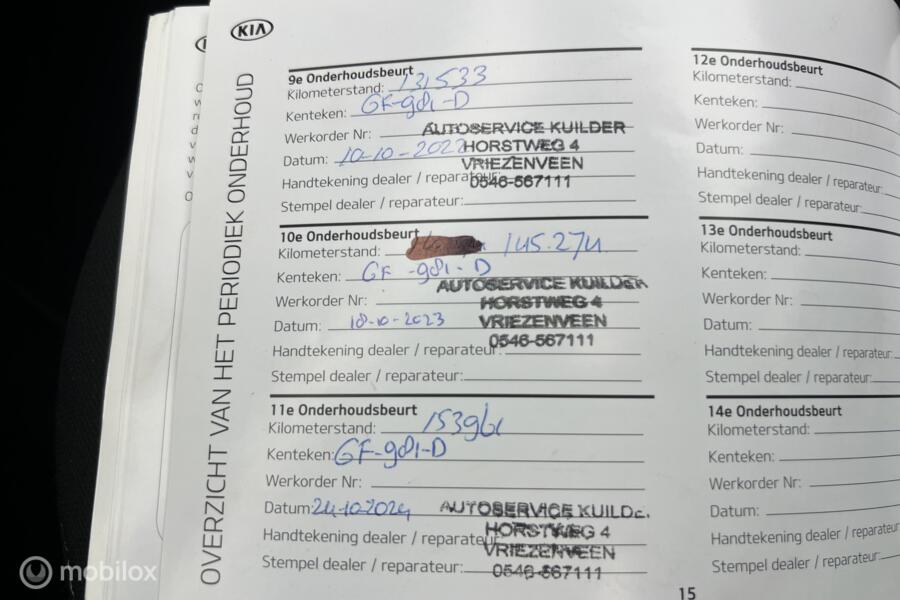 KIA
OVERZICHT VAN HET PERIODIEK ONDERHOUD
9e Onderhoudsbeurt
Kilometerstand: 131533
Kenteken: GF-981-D
Werkorder Nr:
Datum: 10-10-2022
Handtekening dealer / reparateur:
Stempel dealer / reparateur:
AUTOSERVICE KUILDER
HORSTWEG 4
VRIEZENVEEN
0546-567111
10e Onderhoudsbeurt
Kilometerstand: 145.274
Kenteken: GF-981-D
Werkorder Nr:
Datum: 18-10-2023
Handtekening dealer / reparateur:
Stempel dealer / reparateur:
AUTOSERVICE KUILDER
HORSTWEG 4
VRIEZENVEEN
0546-567111
11e Onderhoudsbeurt
Kilometerstand: 153961
Kenteken: GF-981-D
Werkorder Nr:
Datum: 24-10-2024
Handtekening dealer / reparateur:
Stempel dealer / reparateur:
AUTOSERVICE KUILDE
HORSTWEG 4
VRIEZENVEEN
0546-567111
12e Onderhoudsbeurt
Kilometerstand:
Kenteken:
Werkorder Nr:
Datum:
Handtekening dealer / reparateur:
Stempel dealer / reparateur:
13e Onderhoudsbeurt
Kilometerstand:
Kenteken:
Werkorder Nr:
Datum:
Handtekening dealer / reparateur:
Stempel dealer / reparateur:
14e Onderhoudsbeurt
Kilometerstand:
Kenteken:
Werkorder Nr:
Datum:
Handtekening dealer / reparateur
Stempel dealer / reparateur:
15
mobilox